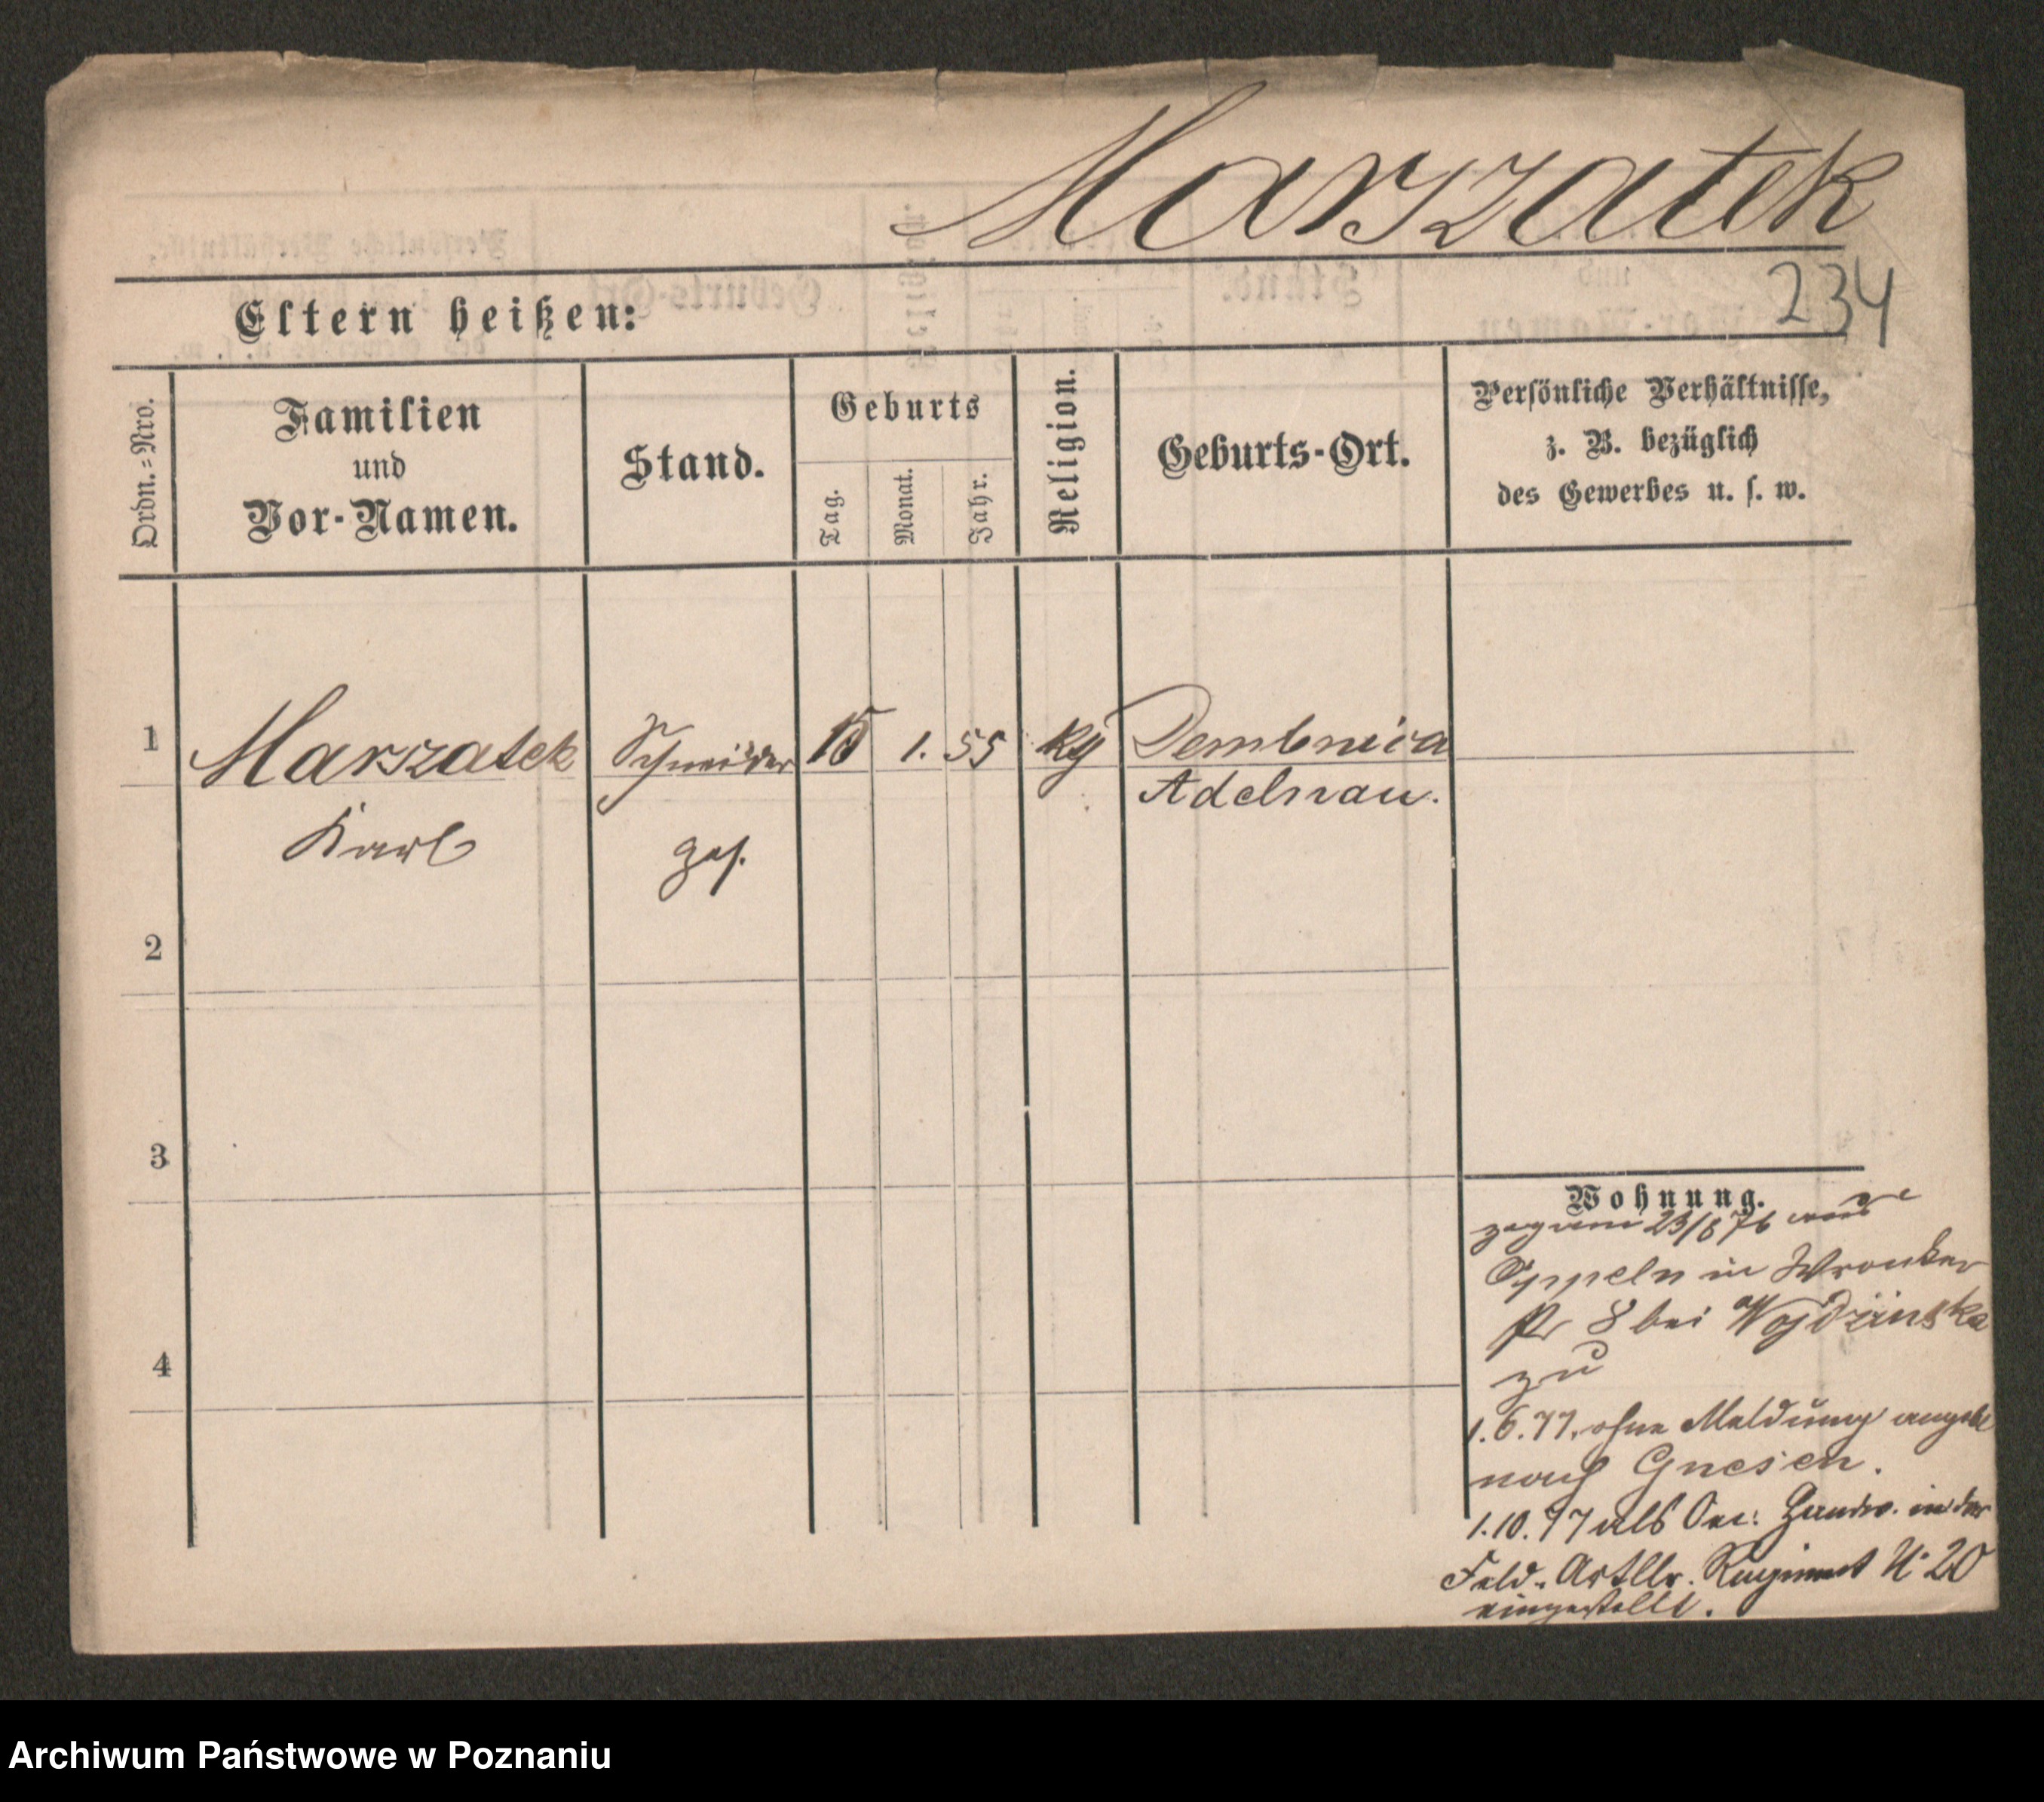 Marszatek
234
Eltern heißen:
Ordn.=Nro.
Familien
und
Vor-Namen.
Stand.
Geburts
Tag.
Monat.
Jahr.
Religion.
Geburts-Ort.
Persönliche Verhältnisse,
z. B. bezüglich
des Gewerbes u. s. w.
1
Marszatek
Karl
Schneider
ges.
15
1.
55
Dembnica
Adelnau.
2
3
4
Wohnung.
zog am 23/8 76 aus
Oppeln in Wronker
8 bei Wojdzinska
zu
1.6.77. ohne Meldung angebl
nach Gnesen.
1.10.77 als Oec: Handw. in der
Feld-Artllr. Regiment N: 20
eingestellt.
Archiwum Państwowe w Poznaniu